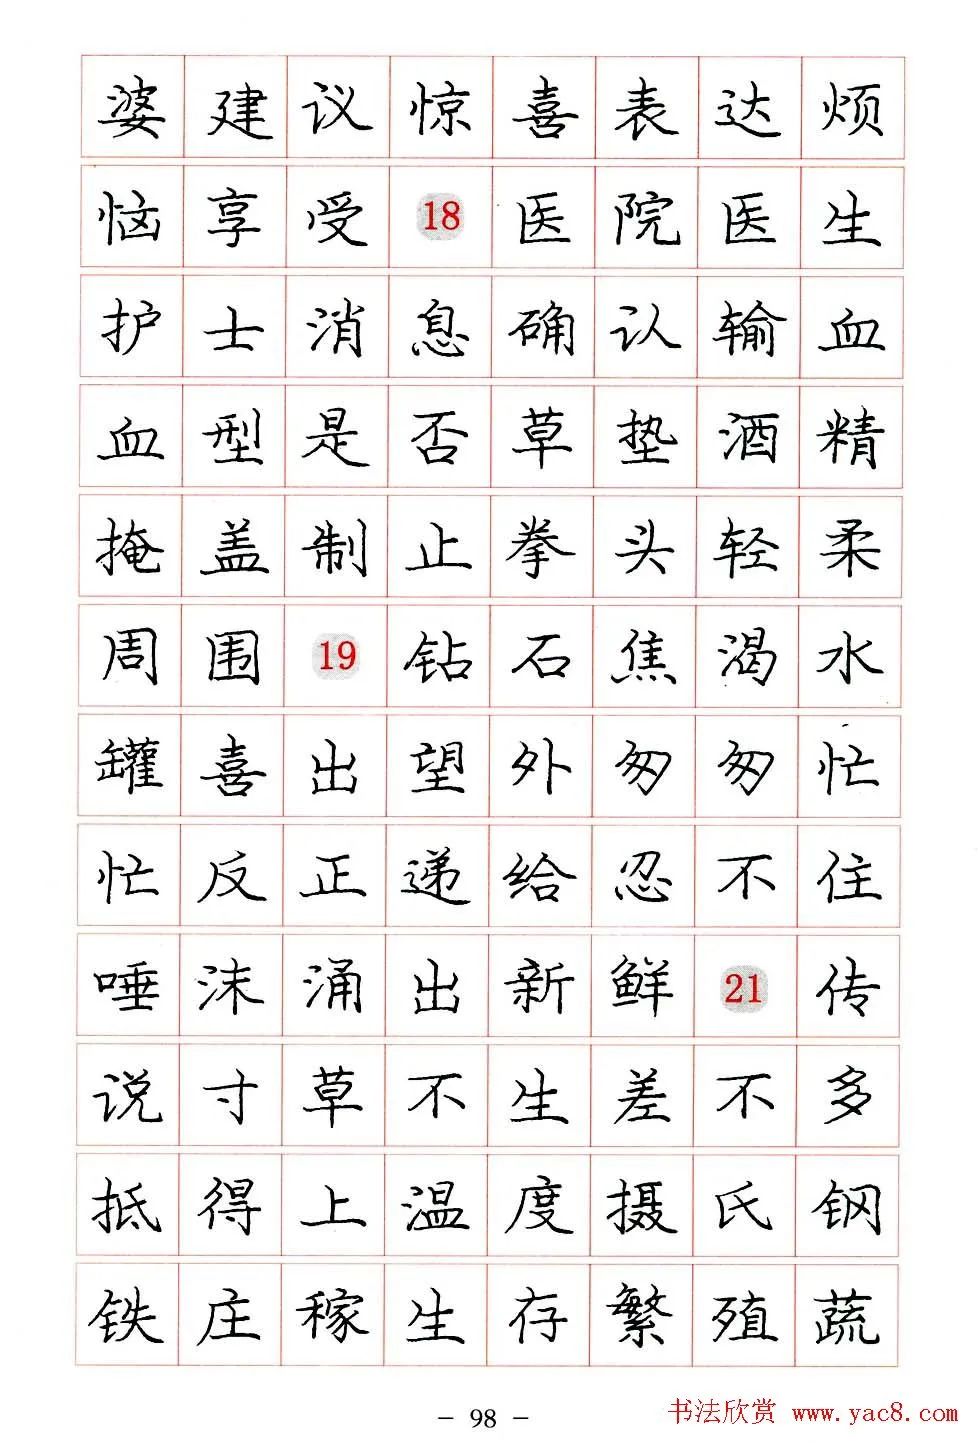 婆建议惊喜表达烦
恼享受18医院医生
护士消息确认输血
血型是否草垫酒精
掩盖制止拳头轻柔
周围19钻石焦渴水
罐喜出望外匆匆忙
忙反正递给忍不住
唾沫涌出新鲜21传
说寸草不生差不多
抵得上温度摄氏钢
铁庄稼生存繁殖蔬
- 98 -
书法欣赏 www.yac8.com